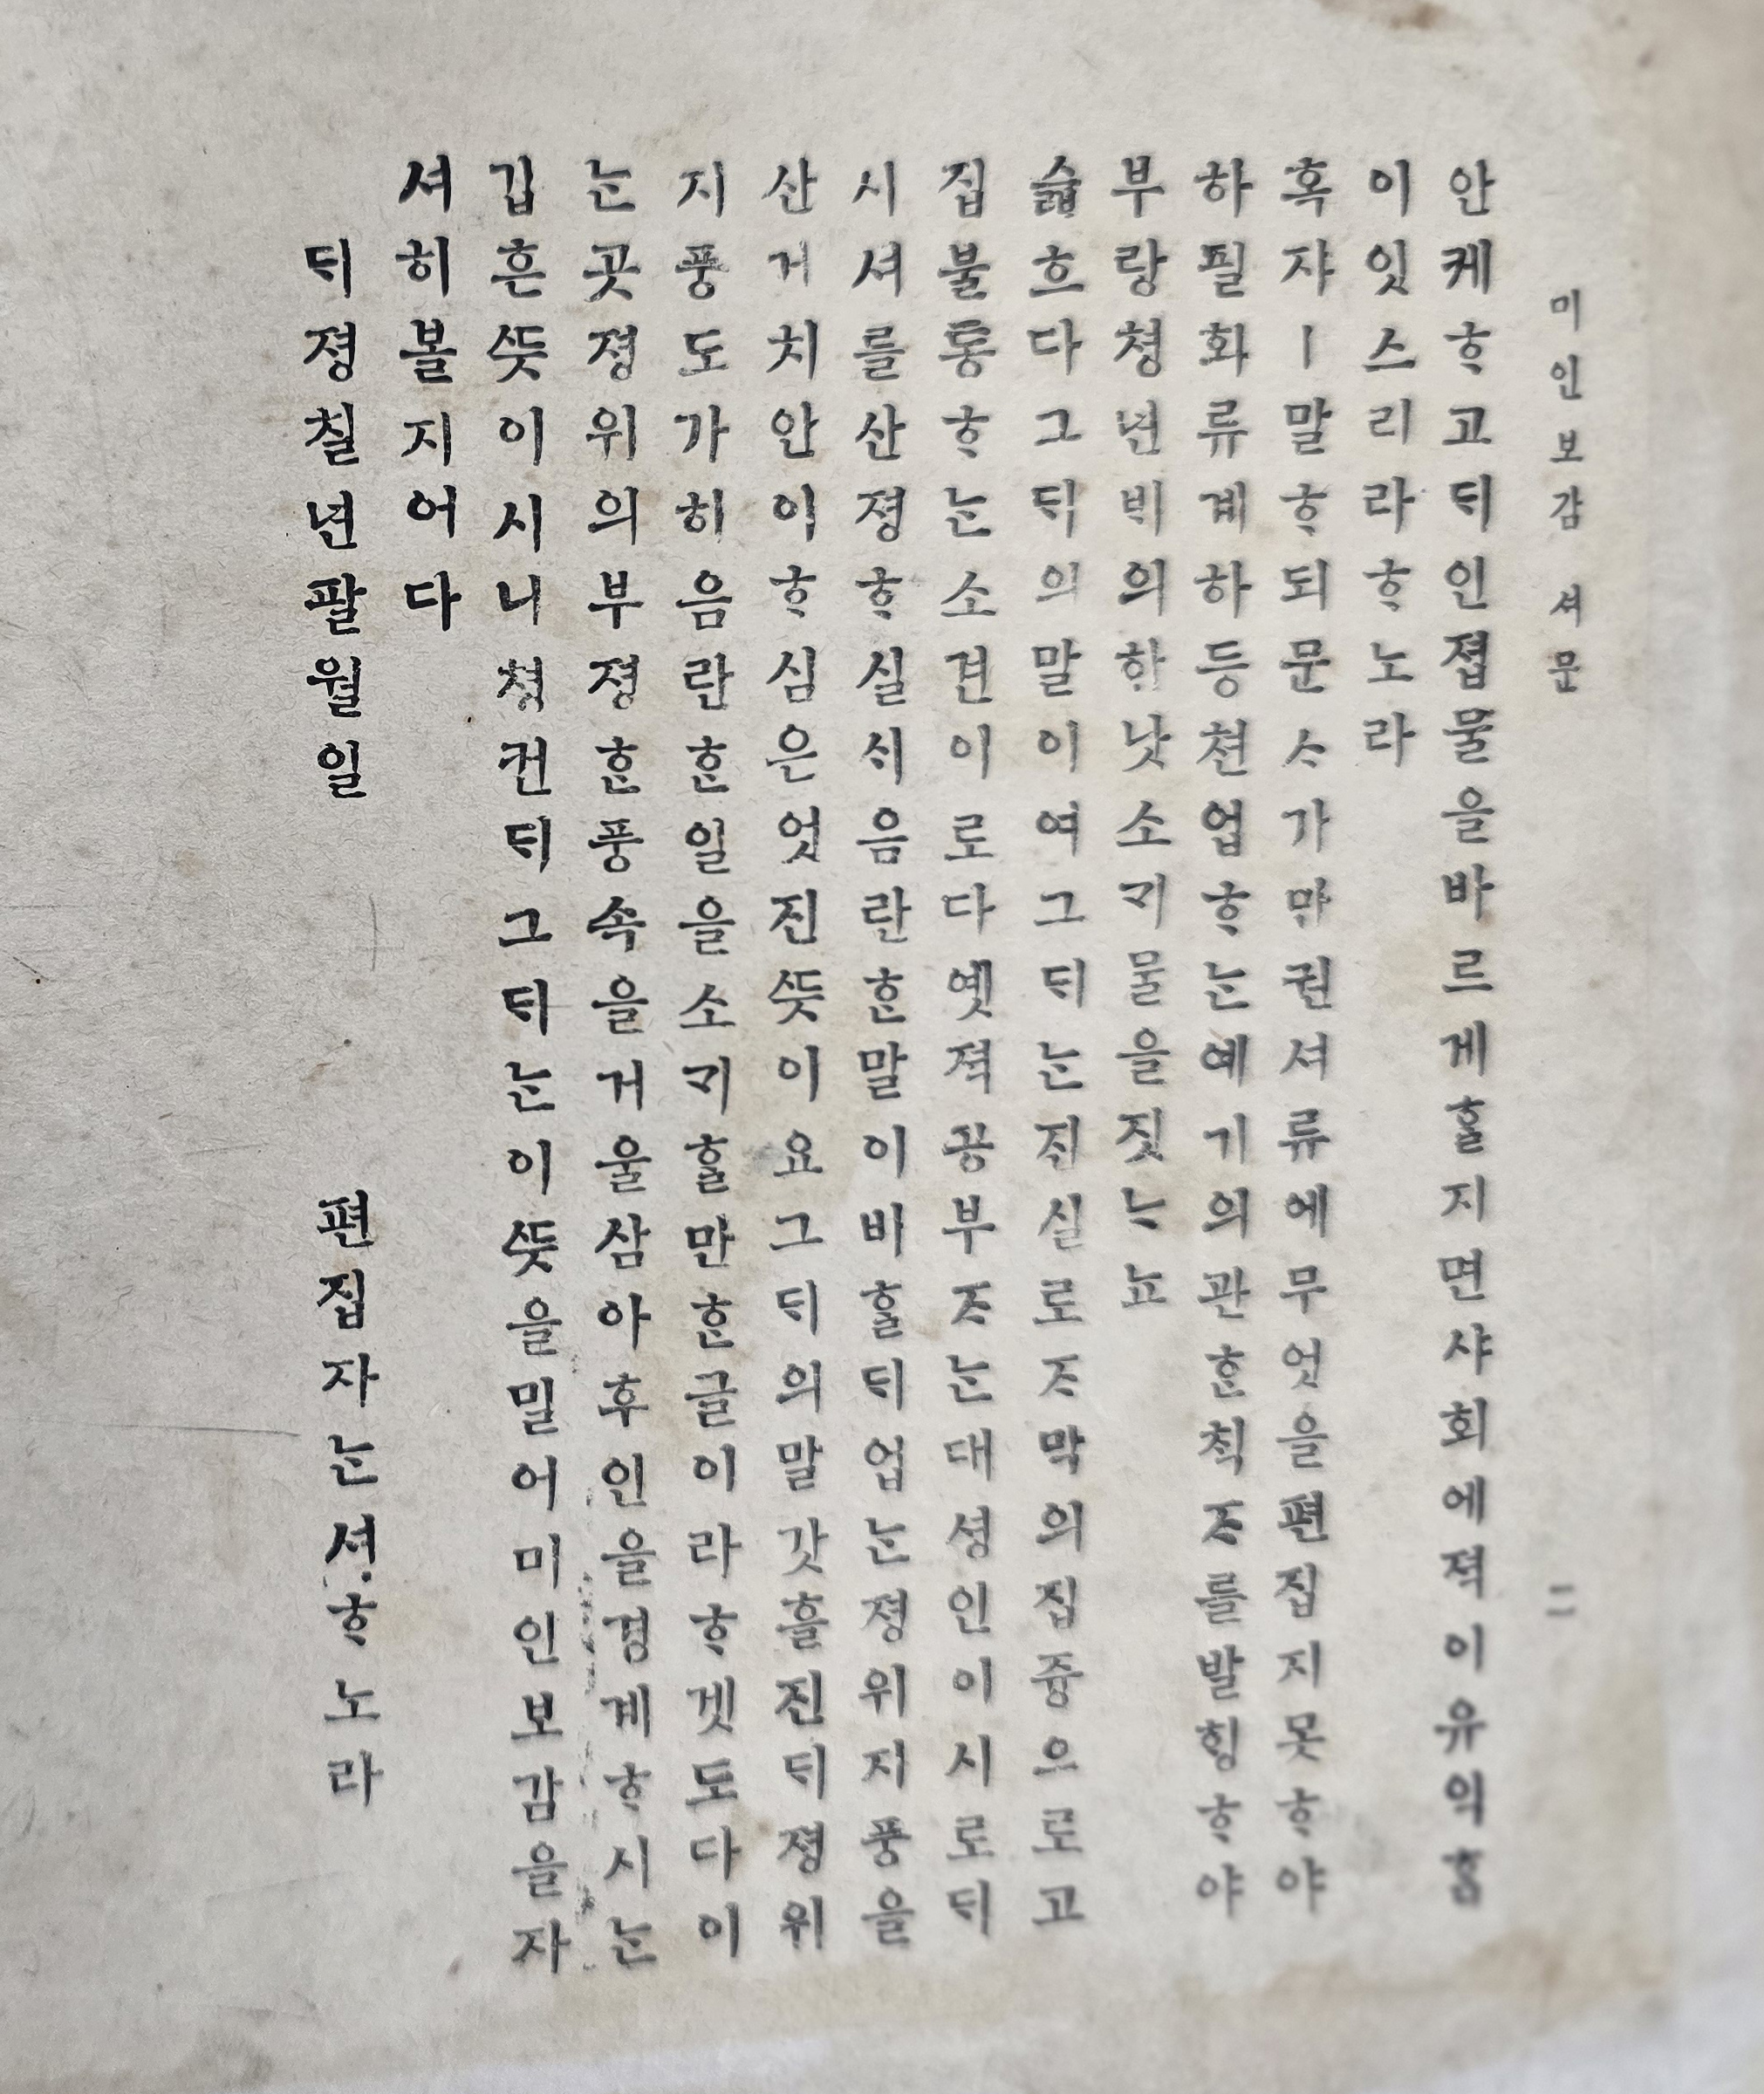 미인보감 셔문 二
안케ᄒᆞ고 ᄃᆡ인졉물을 바르게 ᄒᆞᆯ지면 샤회에 젹이 유익ᄒᆞᆷ
이 잇스리라 ᄒᆞ노라
혹쟈ㅣ 말ᄒᆞ되 문ᄉᆞ가 만권셔류에 무엇을 편집지 못ᄒᆞ야
하필 화류계 하등쳔업ᄒᆞᄂᆞᆫ 예기의 관ᄒᆞᆫ 칙ᄌᆞ를 발ᄒᆡᆼᄒᆞ야
부랑쳥년ᄇᆡ의 한낫 소ᄀᆡ물을 짓ᄂᆞ뇨
슯흐다 그ᄃᆡ의 말이여 그ᄃᆡᄂᆞᆫ 진실로 ᄌᆞ막의 집즁으로 고
집불통ᄒᆞᄂᆞᆫ 소견이로다 옛젹 공부ᄌᆞᄂᆞᆫ 대셩인이시로ᄃᆡ
시셔를 산졍ᄒᆞ실ᄉᆡ 음란ᄒᆞᆫ 말이 비ᄒᆞᆯᄃᆡ 업ᄂᆞᆫ 졍위지풍을
산거치 안이ᄒᆞ심은 엇진 ᄯᅳᆺ이요 그ᄃᆡ의 말 갓흘진ᄃᆡ 졍위
지풍도 가히 음란ᄒᆞᆫ 일을 소ᄀᆡᄒᆞᆯ만ᄒᆞᆫ 글이라 ᄒᆞ겟도다 이
ᄂᆞᆫ 곳 졍위의 부졍ᄒᆞᆫ 풍속을 거울 삼아 후인을 경계ᄒᆞ시ᄂᆞᆫ
깁흔 ᄯᅳᆺ이시니 쳥권ᄃᆡ 그ᄃᆡᄂᆞᆫ 이 ᄯᅳᆺ을 밀어 미인보감을 자
셔히 볼지어다
ᄃᆡ졍 칠년 팔월 일 편집자ᄂᆞᆫ 셔ᄒᆞ노라